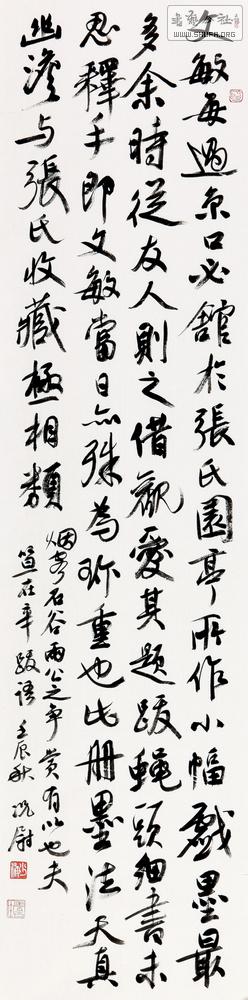 文敏每過京口必館於張氏園亭所作小幅戲墨最
多余時從友人則之借觀愛其題跋蠅頭細書未
忍釋手即文敏當日亦殊為珍重也此册墨法天真
幽澹与張氏收藏極相類
烟客石谷兩公之争賞有以也夫
笪在辛跋語 壬辰秋
WWW.SHUFA.ORG